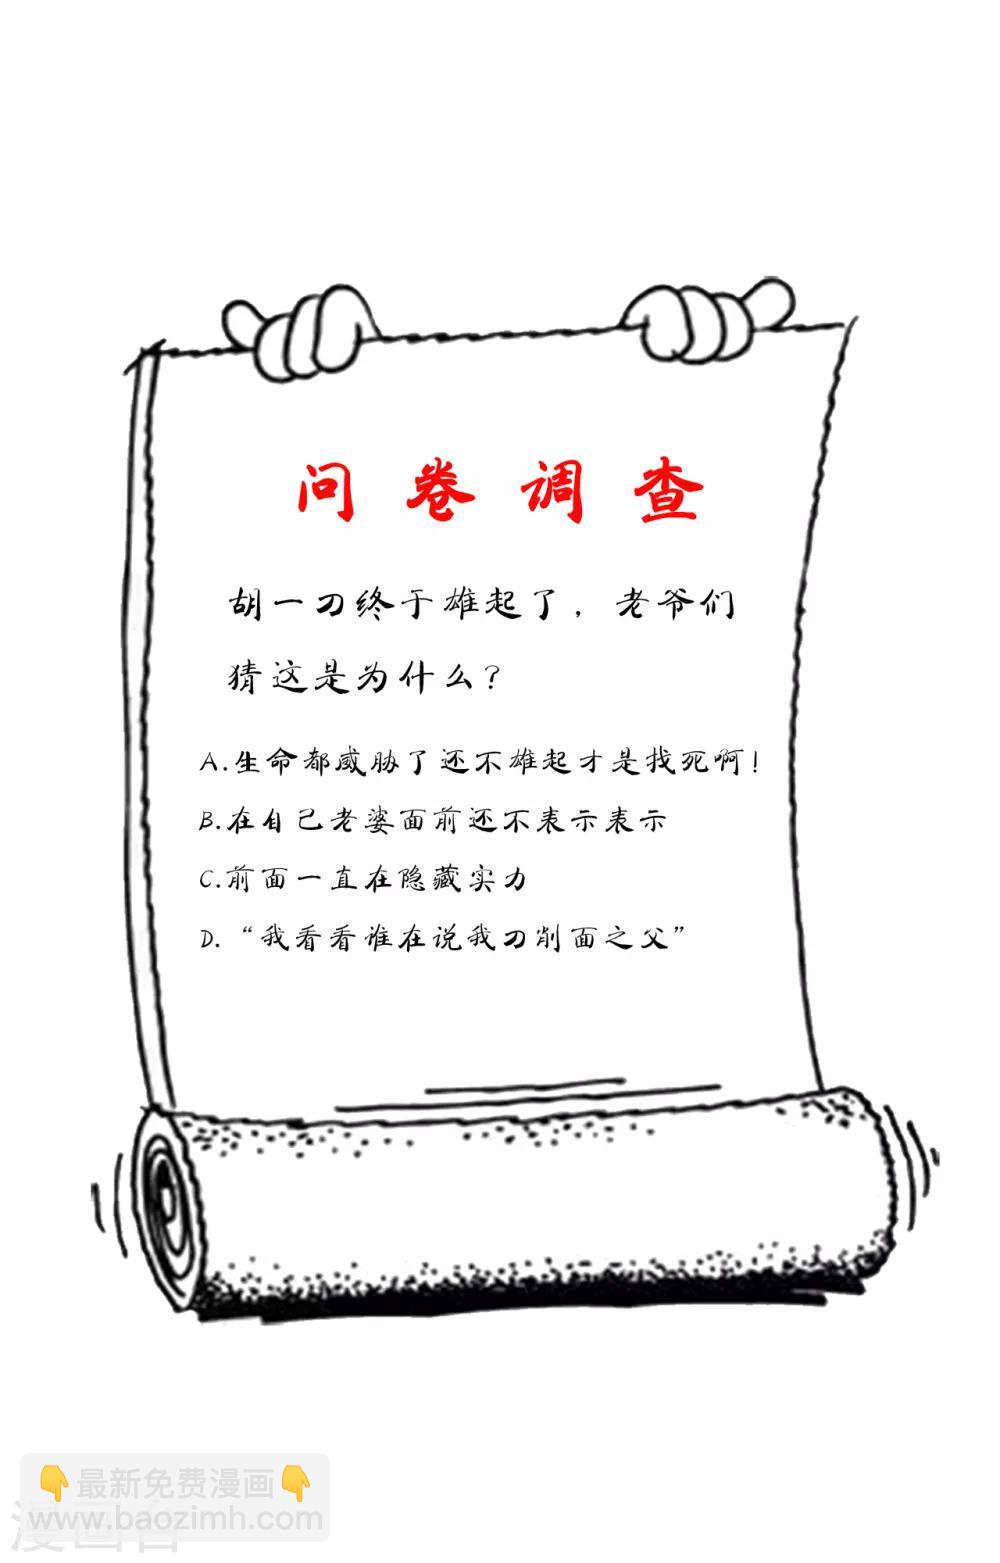 问卷调查
胡一刀终于雄起了，老爷们
猜这是为什么？
A.生命都威胁了还不雄起才是找死啊！
B.在自己老婆面前还不表示表示
C.前面一直在隐藏实力
D.“我看看谁在说我刀削面之父”
👇最新免费漫画👇
www.baozimh.com
漫画台